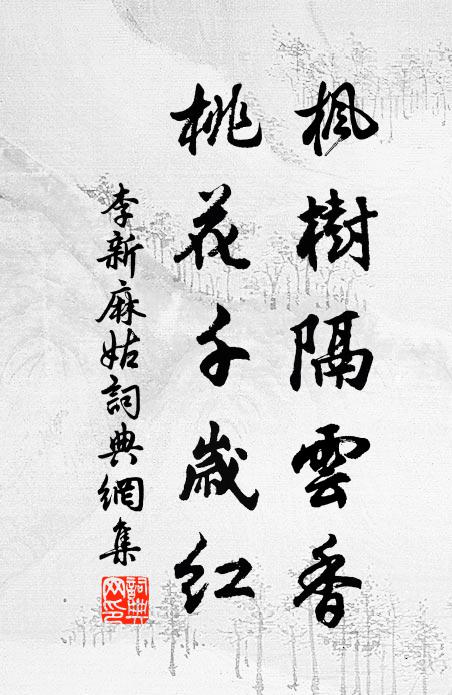 楓樹隔雲香
桃花千歲紅
李新麻姑詞典網集
詞典網印